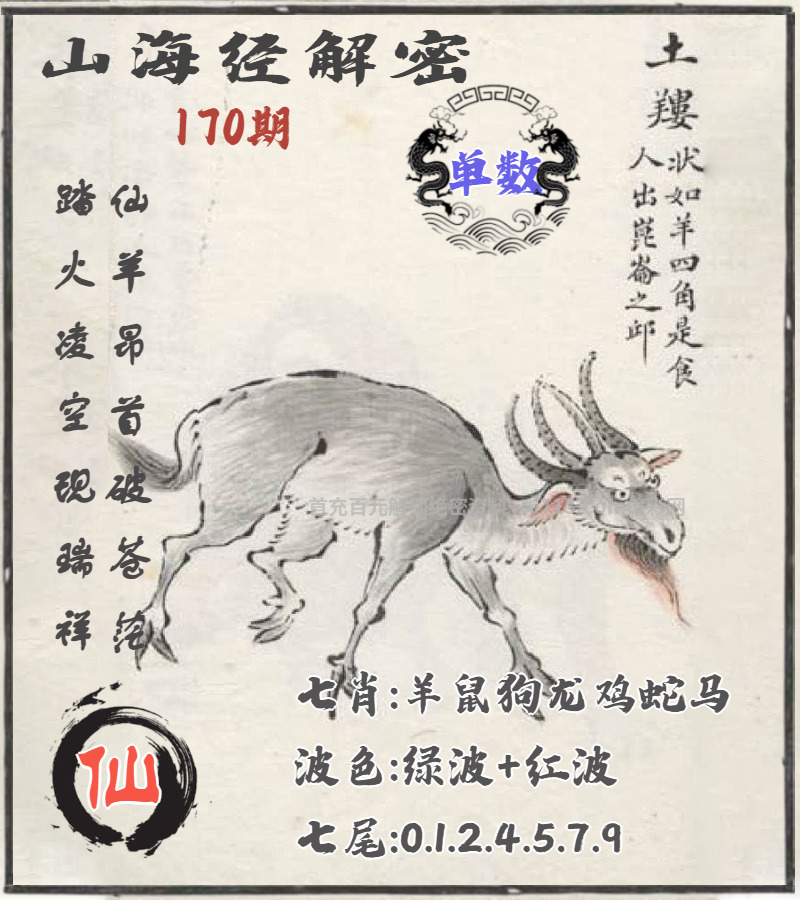 山海经解密
170期
单数
土
羬
状如羊四角是食
人出崑崙之邱
仙羊昂首破苍茫
踏火凌空现瑞祥
仙
七肖:羊鼠狗龙鸡蛇马
波色:绿波+红波
七尾:0.1.2.4.5.7.9